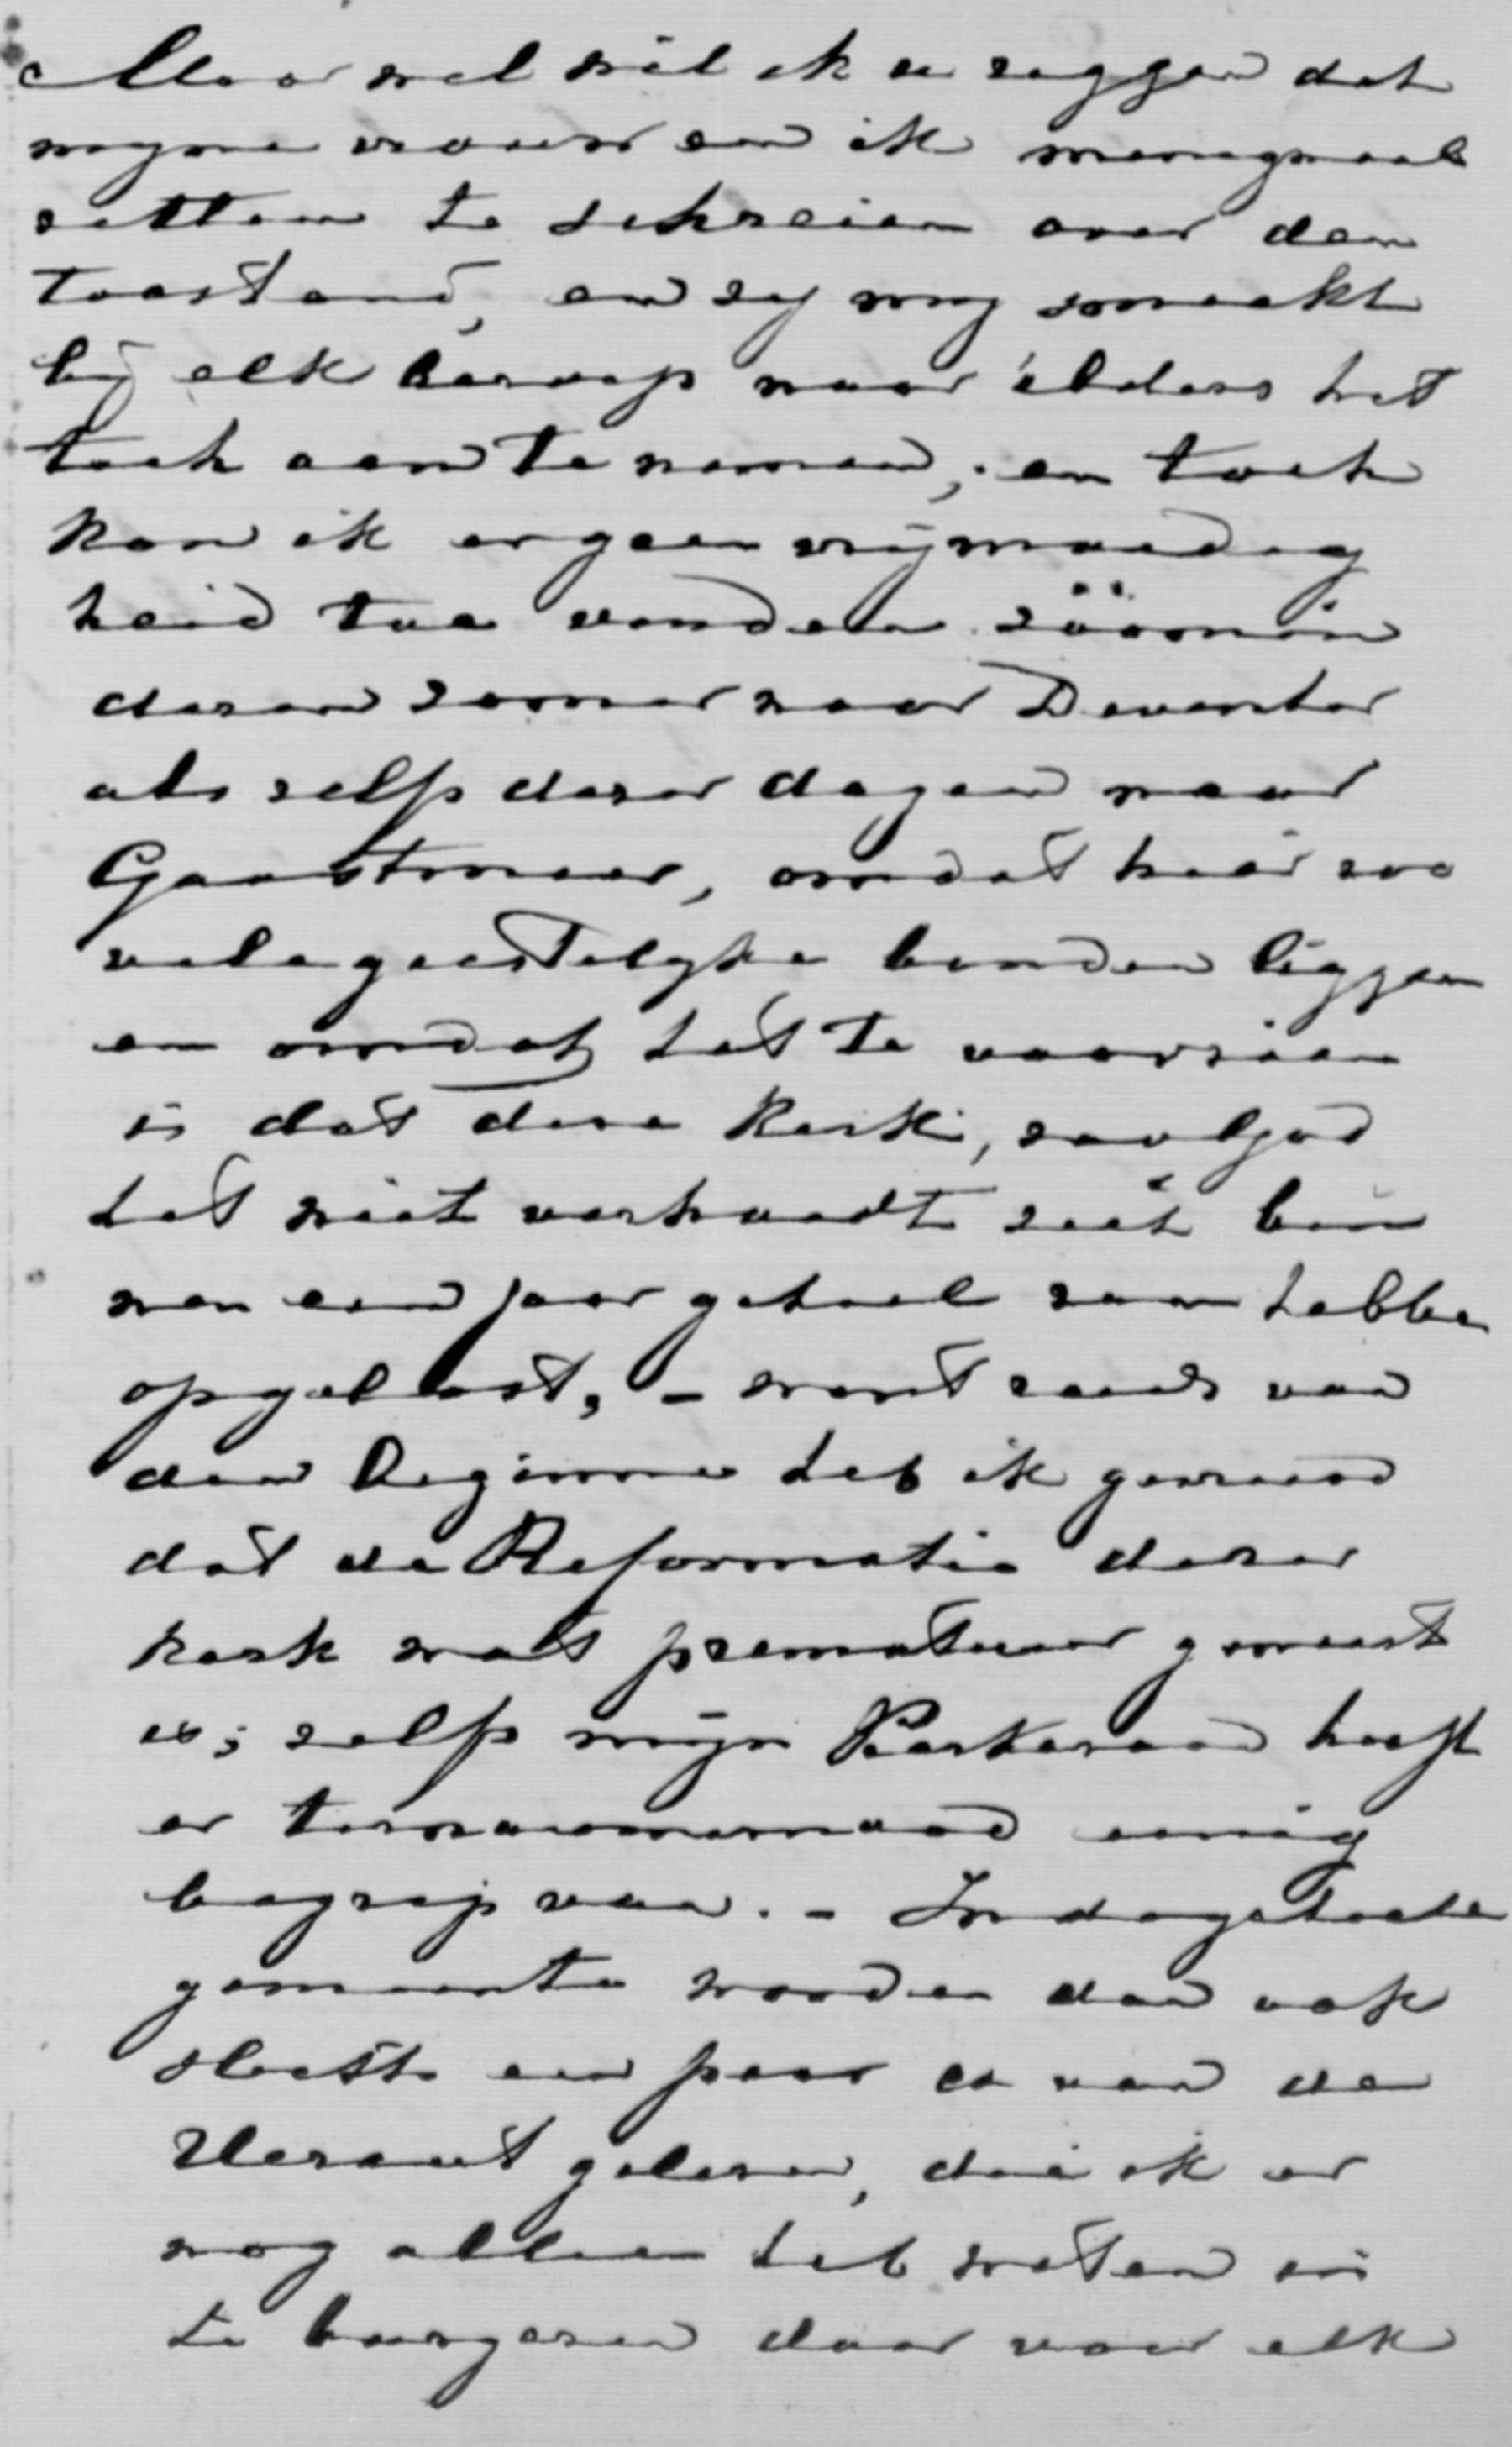 Maar wel wil ik u zeggen dat
mijne vrouw en ik menigmaal
zitten te schreien over den
toestand, en zij mij smeekt
bij elk beroep naar elders het
toch aan te nemen; en toch
kan ik er geen vrijmoedig
heid toe vinden zóómin
dezen zomer naar Deventer
als zelfs dezer dagen naar
Gaastmeer, omdat hier zoo
vele geestelijke banden liggen
en omdat het te voorzien
is dat deze kerk, zoo God
het niet verhoedt zich bin
nen een jaar geheel zou hebben
opgelost, – want reeds van
den beginne heb ik gevreesd
dat de Reformatie dezer
kerk wat prematuur geweest
is; zelfs mijn Kerkeraad heeft
er ternauwernood eenig
begrip van. – In de geheele
gemeente worden dan ook
slechts een paar ex van de
Heraut gelezen, die ik er
nog alleen heb weten in
te burgeren door voor elk